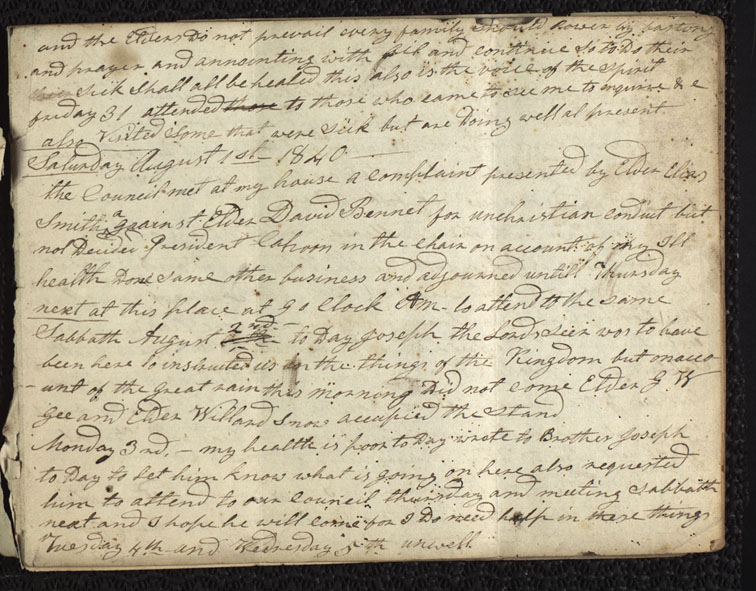 and the Elders Do not prevail every family should know by fasting
and prayer and annointing with oil and continue so to Do their
sick shall all be healed this also is the voice of the spirit
friday 31 attended to those who came to see me to enquire & c
also Visited some that were sick but are Doing well at present
Saturday August 1st 1840
the Council met at my house a complaint presented by Elder Elias
Smith against Elder David Bennet for unchristian conduct but
not Decided President Cahoon in the chair on account of my ill
health Done same other business and adjourned untill Thursday
next at this place at 9 o Clock Am to attend to the same
Sabbath August 2nd to Day Joseph the Lords seer was to have
been here to instructed us in the things of the Kingdom but on acco
unt of the great rain this morning Did not come Elder G W
Gee and Elder Willard Snow accupied the stand
Monday 3rd. – my health is poor to Day wrote to Brother Joseph
to Day to Let him know what is going on here also requested
him to attend to our Council thursday and meeting sabbath
next and I hope he will come for I Do need help in these things
Tuesday 4th and Wednesday 5th unwell